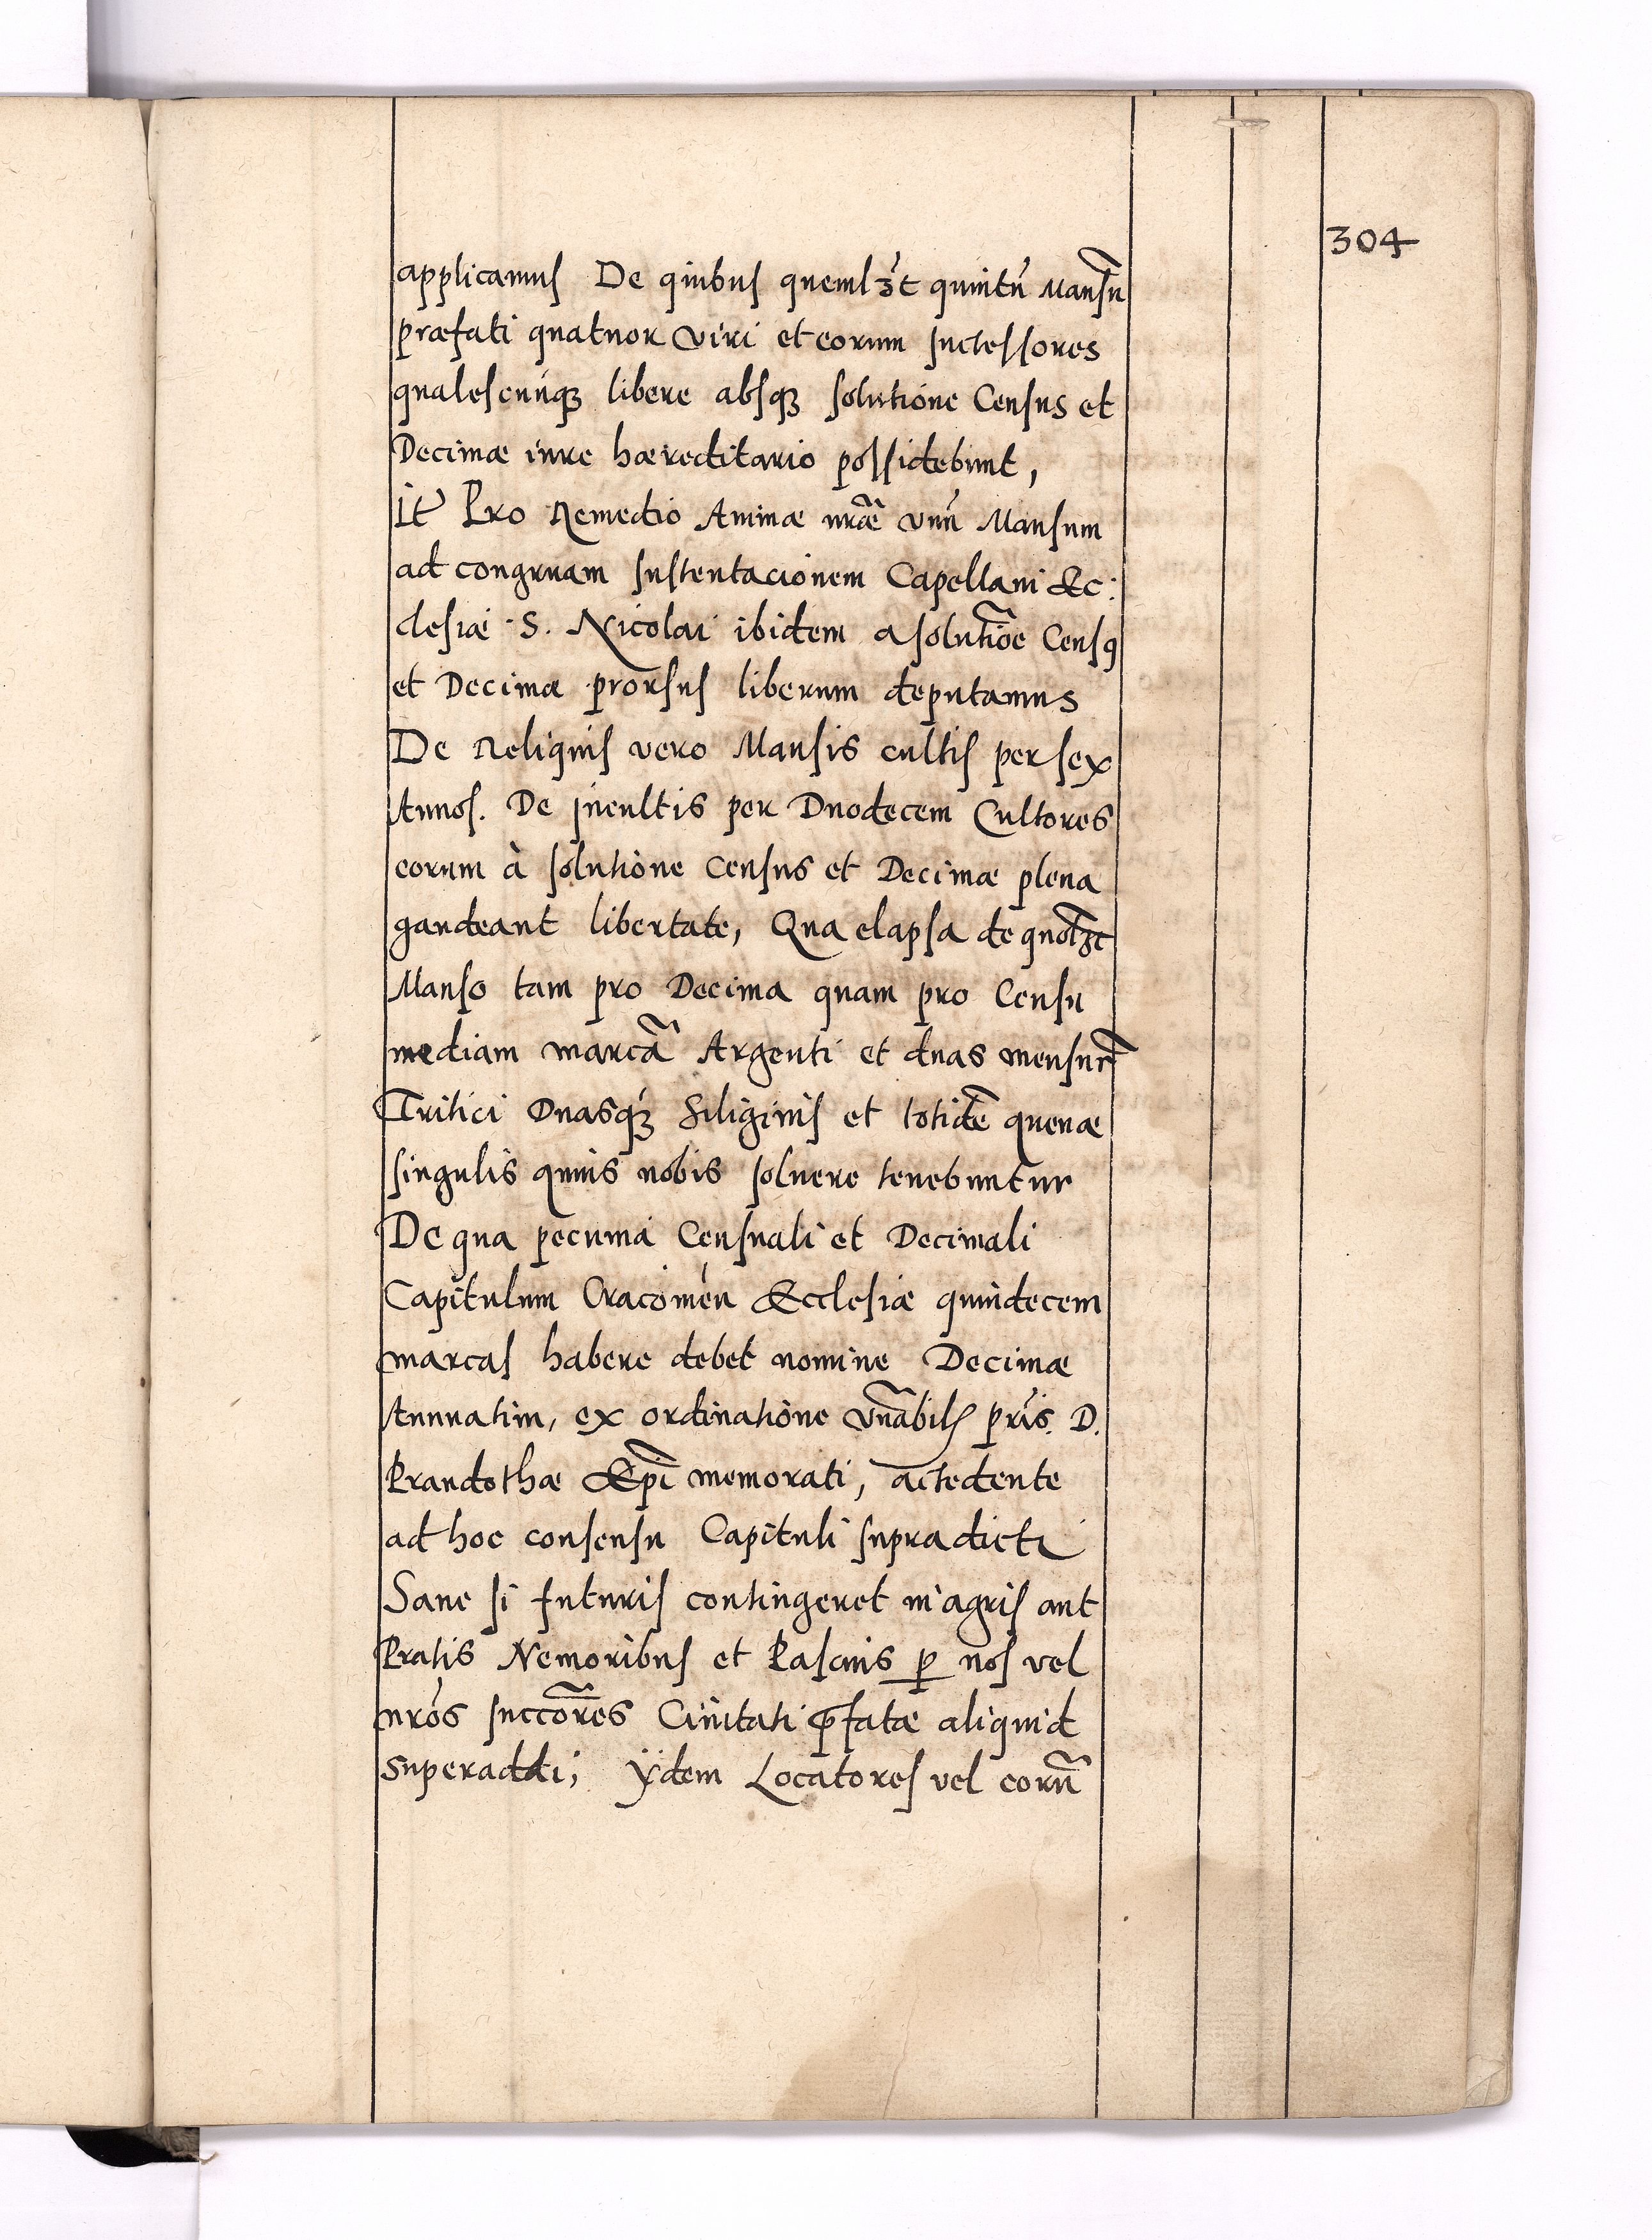 304
applicamus De quibus quemlꝫt quintū Mansū
præfati quatuor viri et eorum successores
qualescunqꝫ libere absqꝫ solutione Census et
Decimæ iure hæreditario possidebunt,
It Pro Remedio Animæ nr̃æ vnū Mansum
ad congruam sustentacionem Capellani Ec:
clesiæ S. Nicolai ibidem a solutiõe Censꝰ
et Decimæ prorsus liberum deputamus
De Reliquis vero Mansis cultis per sex
Annos. De incultis per Duodecem Cultores
eorum à solutione Census et Decimæ plena
gaudeant libertate, Qua elapsa de quolꝫt
Manso tam pro Decima quam pro Censu
mediam marcã Argenti et duas mensur̃
Tritici Duasqꝫ Siliginis et totidẽ quenæ
singulis quuis nobis soluere tenebuntur
De qua pecunia Censuali et Decimali
Capitulum Cracouień Ecclesiæ quindecem
marcas habere debet nomine Decimæ
Annuatim, ex ordinatione vñabilꝭ pris. D.
Prandothæ Ep̃i memorati, accedente
ad hoc consensu Capituli supradicti
Sane si futuris contingeret in agris aut
Pratis Nemoribus et Pascuis ꝑ nos vel
nrōs succõres Ciuitati p̃fatæ aliquid
superaddi, Ÿdem Locatores vel eorū